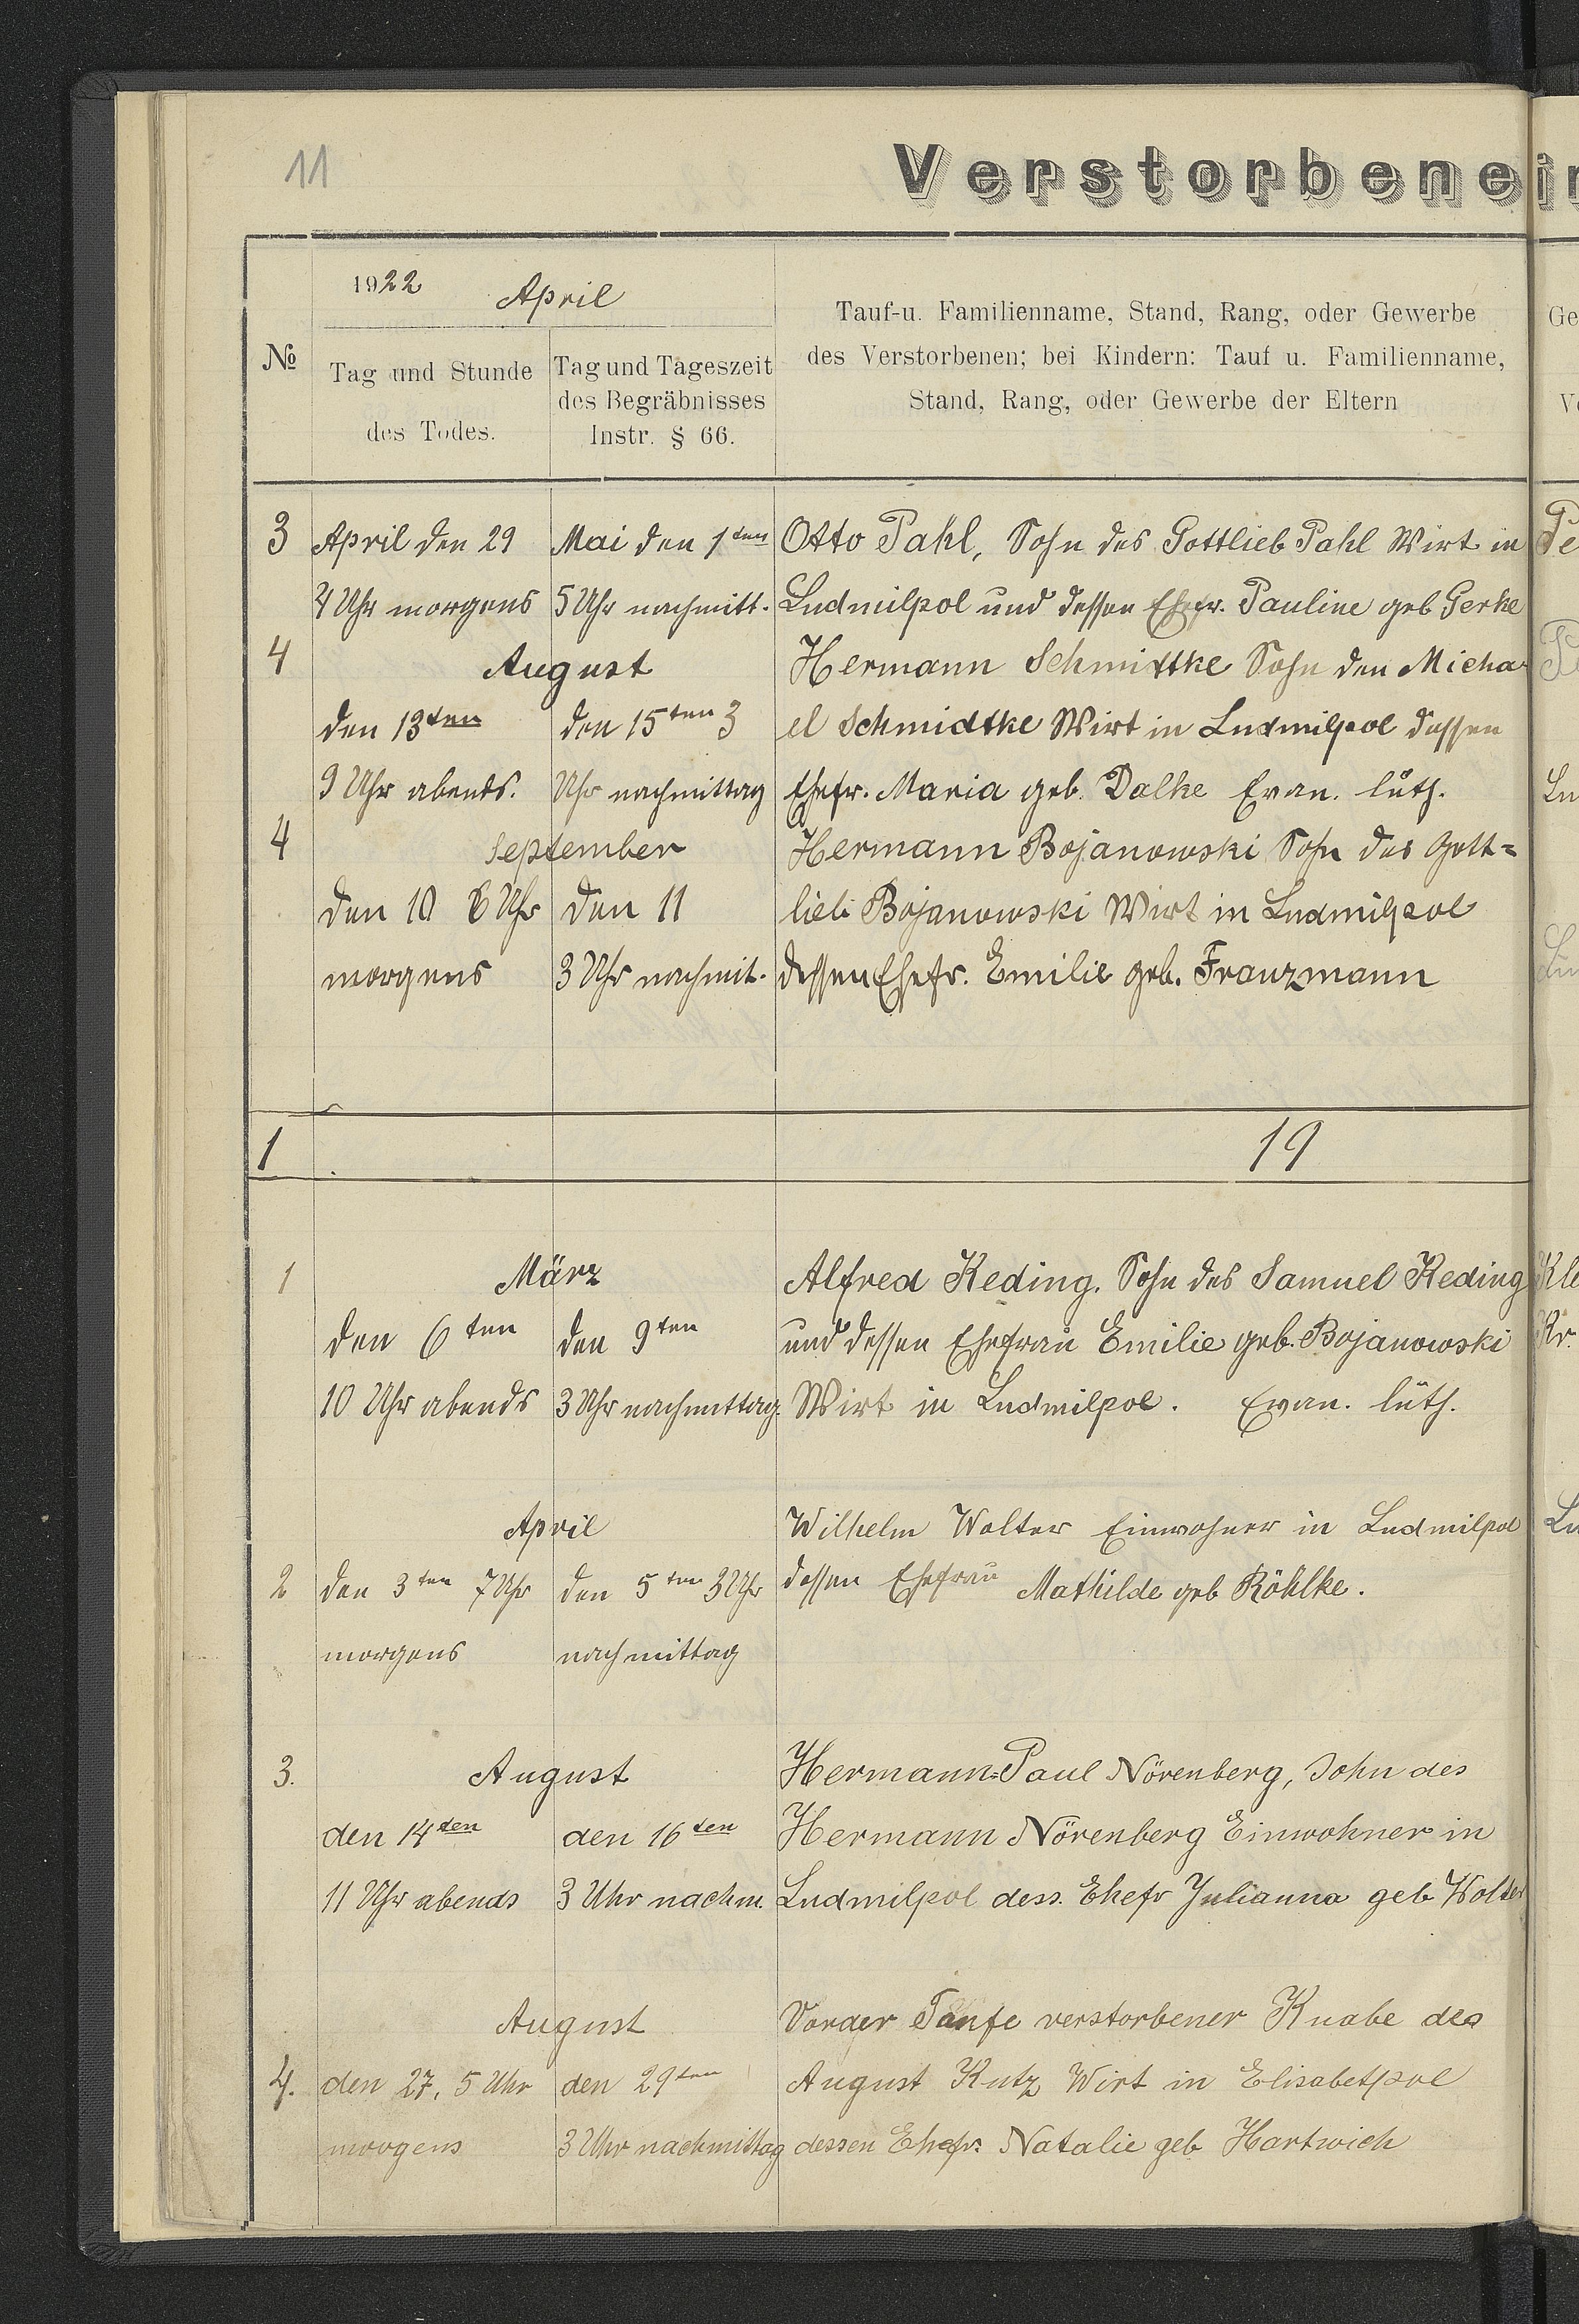 11
Verstorbene
1922 April
№
Tag und Stunde
des Todes.
Tag und Tageszeit
des Begräbnisses
Instr. § 66.
Tauf-u. Familienname, Stand, Rang, oder Gewerbe
des Verstorbenen; bei Kindern: Tauf u. Familienname,
Stand, Rang, oder Gewerbe der Eltern
3 April den 29 Mai den 1ten Otto Pahl, Sohn des Gottlieb Pahl Wirt in
Uhr morgens 5 Uhr nachmitt. Ludmilpol und dessen Ehefr. Pauline geb Gerke
4 August Hermann Schmittke Sohn den Micha-
den 13ten den 15ten 3 el Schmidtke Wirt in Ludmilpol dessen
9 Uhr abends. Uhr nachmittag Ehefr. Maria geb. Dalke Evan. luth.
4 September Hermann Bojanowski Sohn des Gott=
den 10 6 Uhr den 11 lieb Bojanowski Wirt in Ludmilpol
morgens 3 Uhr nachmit. dessen Ehefr. Emilie geb. Franzmann
1 19
1 März Alfred Keding. Sohn des Samuel Keding
den 6ten den 9ten und dessen Ehefrau Emilie geb. Bojanowski
10 Uhr abends 3 Uhr nachmittag. Wirt in Ludmilpol. Evan. luth.
April Wilhelm Wolter Einwohner in Ludmilpol
2 den 3ten 7 Uhr den 5ten 3 Uhr dessen Ehefrau Mathilde geb Röhlke.
morgens nachmittag
3. August Hermann=Paul Nörenberg, Sohn des
den 14ten den 16ten Hermann Nörenberg Einwohner in
11 Uhr abends 3 Uhr nachm. Ludmilpol dess. Ehefr Julianna geb Wolter
August Vorder Taufe verstorbener Knabe des
4. den 27, 5 Uhr den 29ten August Kutz Wirt in Elisabetpol
morgens 3 Uhr nachmittag dessen Ehefr. Natalie geb Hartwich